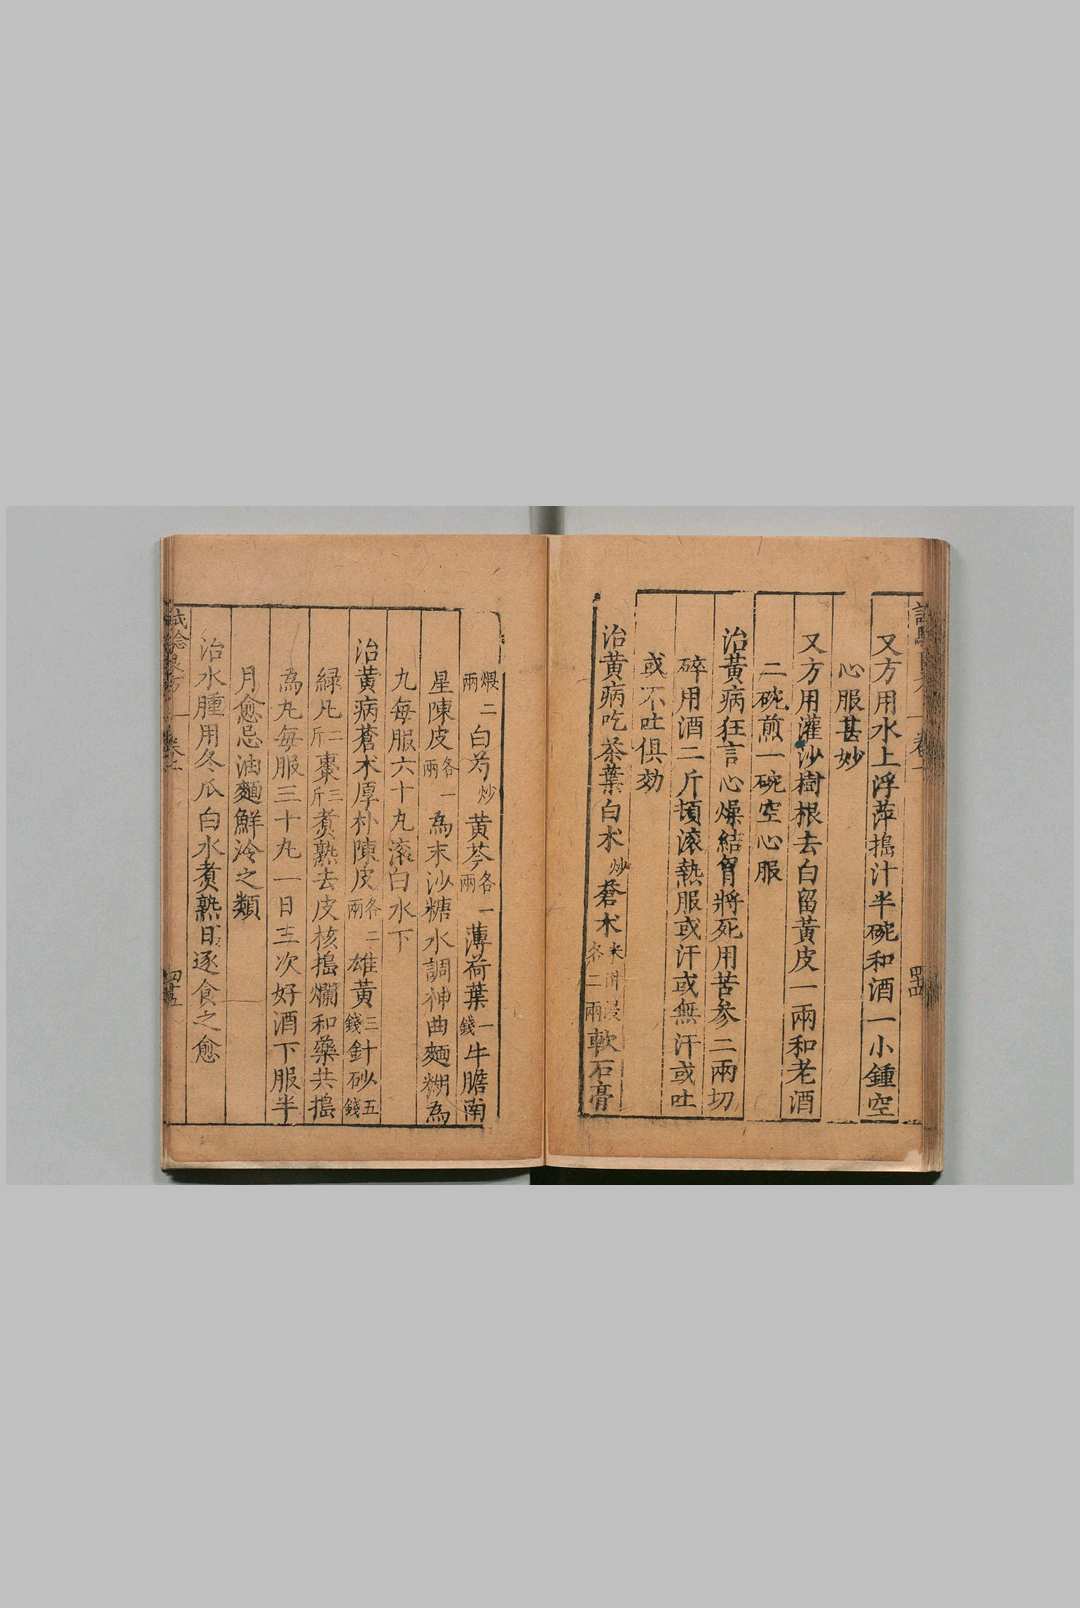 又方用水上浮萍搗汁半碗和酒一小鍾空
心服甚妙
又方用灌沙樹根去白留黃皮一兩和老酒
二碗煎一碗空心服
治黃病狂言心燥結胷將死用苦參二兩切
碎用酒二斤頓滾熱服或汗或無汗或吐
或不吐俱効
治黃病吃茶葉白朮炒蒼朮米泔浸各二兩軟石膏
煨二兩白芍炒黃芩各一兩薄荷葉一錢牛膽南
星陳皮各一兩為末沙糖水調神曲麵糊為
丸每服六十丸滾白水下
治黃病蒼朮厚朴陳皮各二兩雄黃三錢針砂五錢
綠凡二斤棗三斤煮熟去皮核搗爛和藥共搗
為丸每服三十丸一日三次好酒下服半
月愈忌油麵鮮冷之類
治水腫用冬瓜白水煮熟日逐食之愈